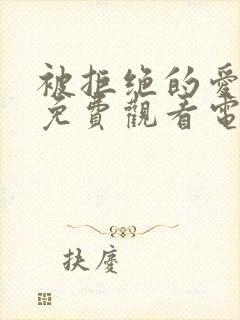 被拒绝的爱
免費觀看電
扶廖